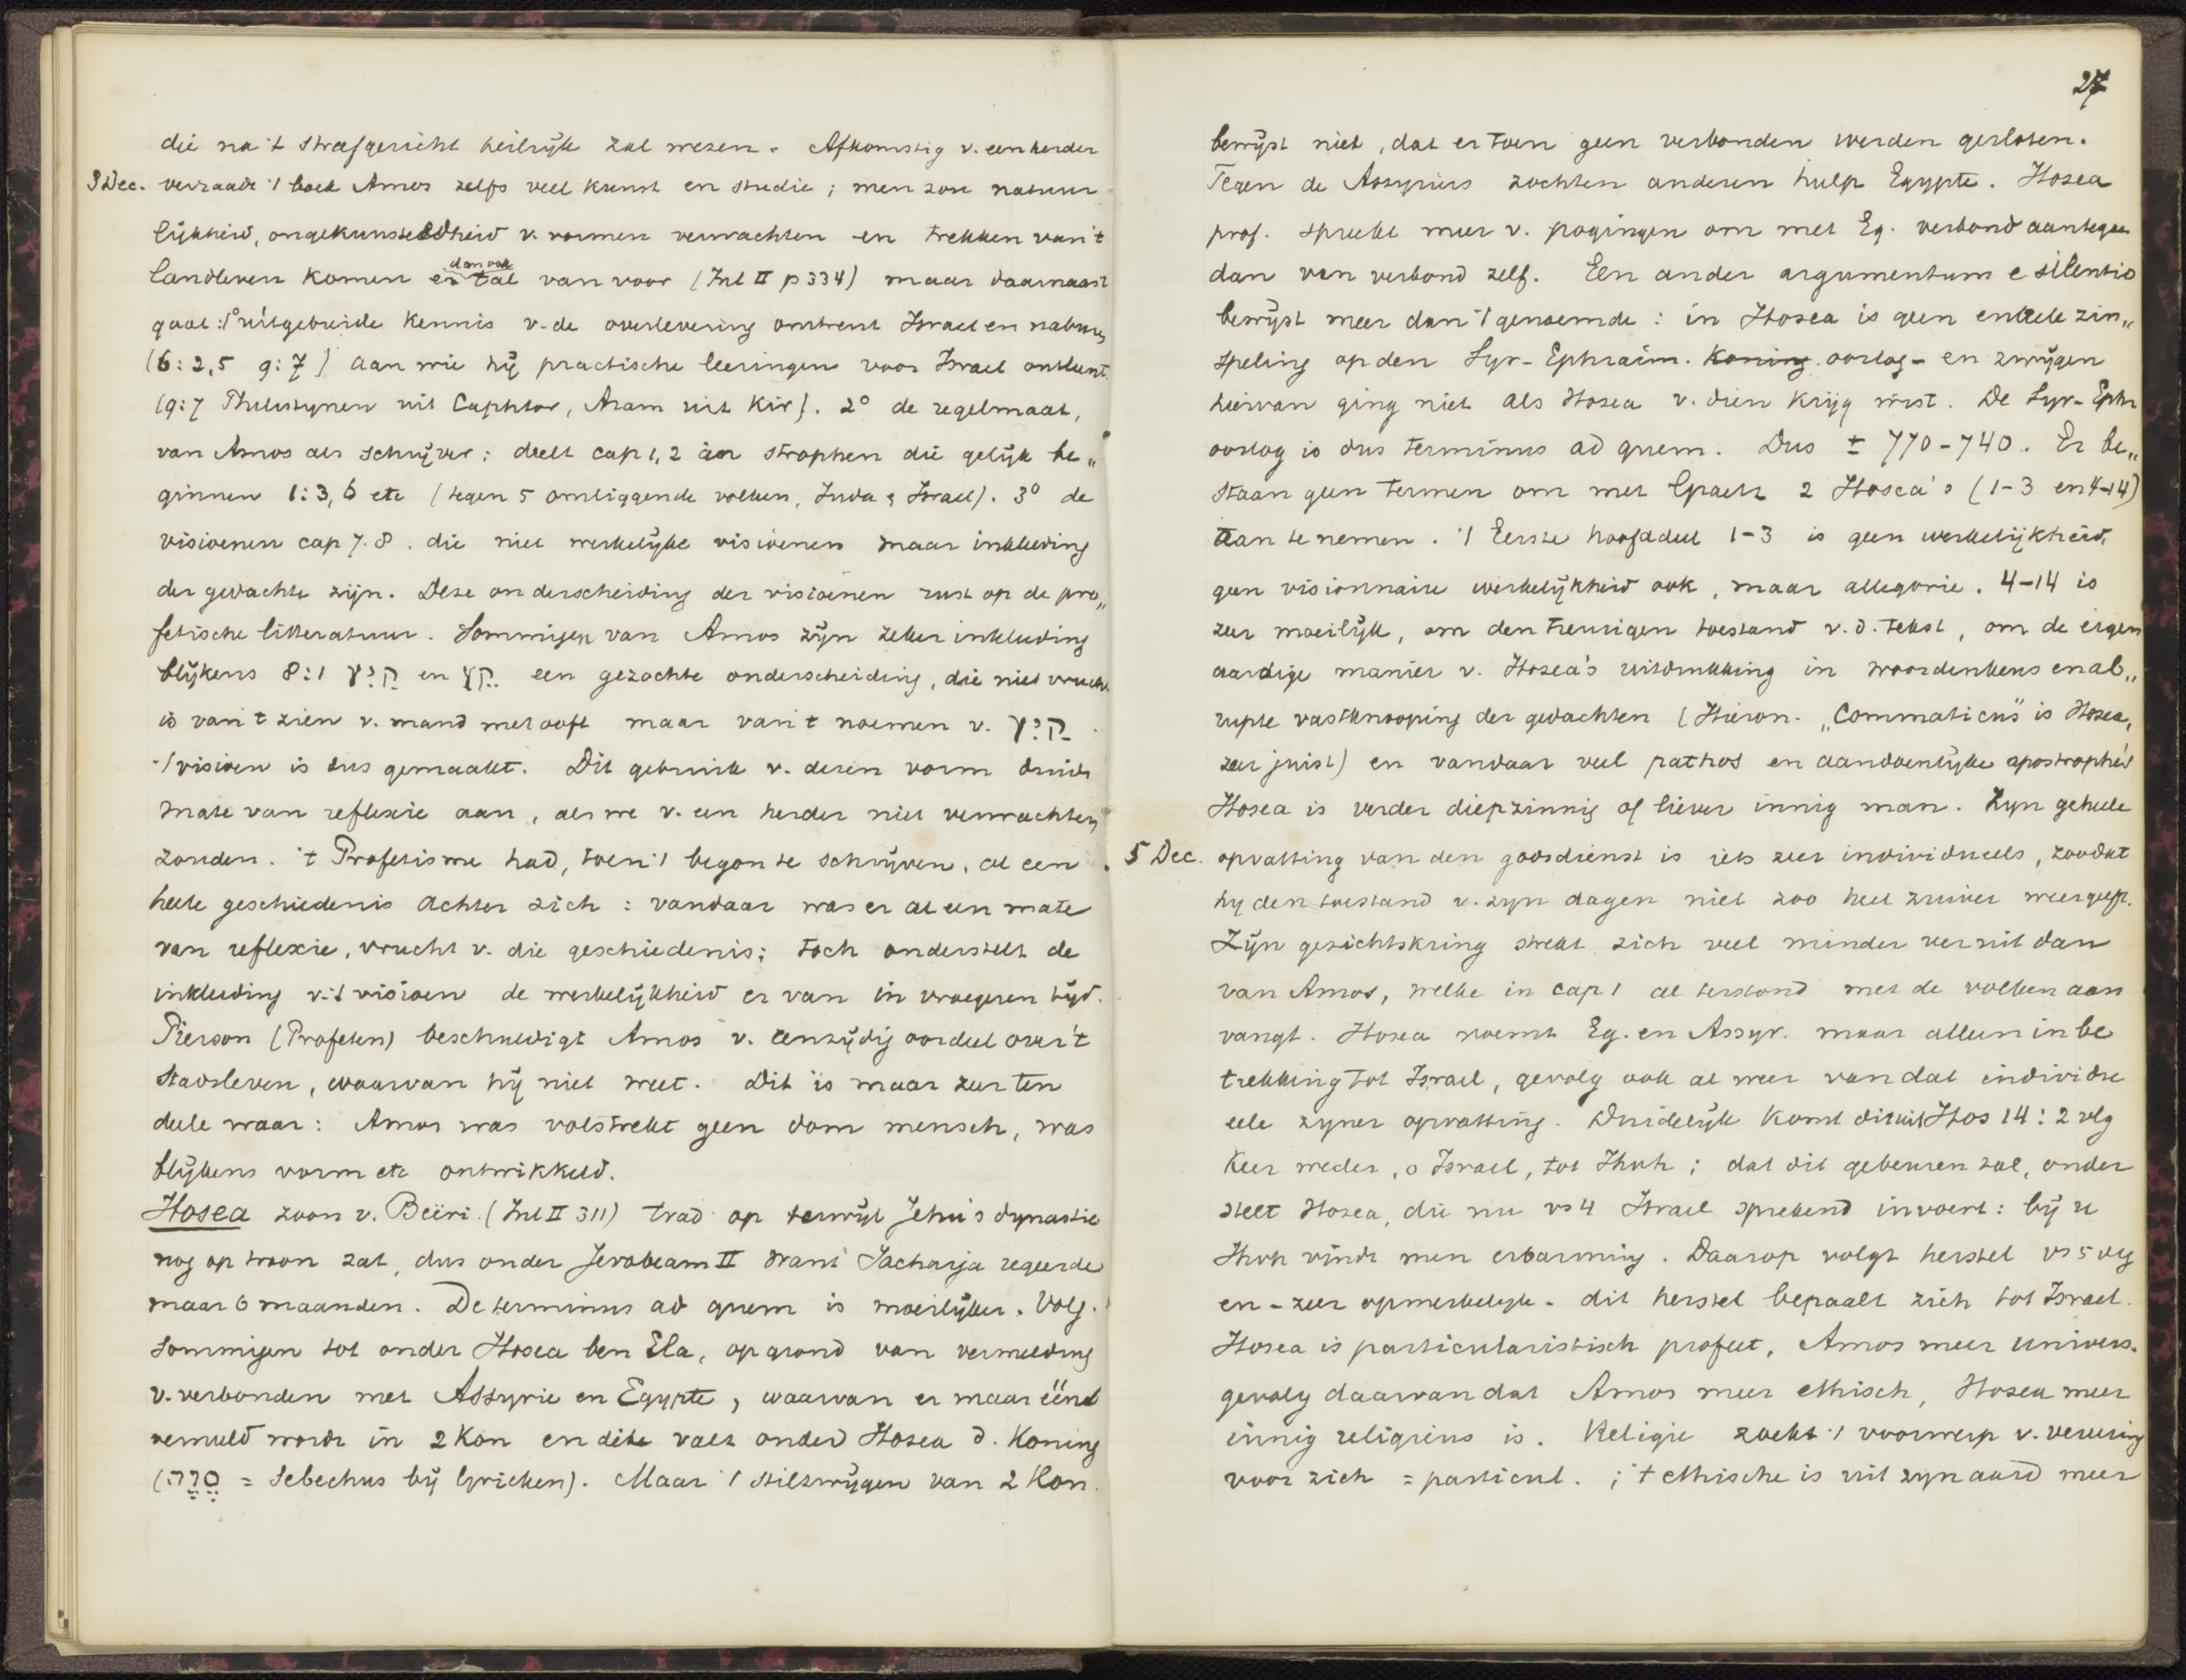 die na 't strafgericht heilrijk zal wezen. Afkomstig v. een herder
3 Dec. verraadt 't boek Amos zelfs veel kunst en studie; men zou natuur
lijkheid, ongekunsteldheid v. vormen verwachten en trekken van 't
landleven komen er dan ook tal van voor (Inl II p 334) maar daarnaast
gaat: 1° uitgebreide kennis v. de overlevering omtrent Israel en naburen
(6:2,5 9:7) aan wie hij practische leeringen voor Israel ontleent.
(9:7 Philistynen uit Caphtor, Aram uit Kir). 2° de regelmaat,
van Amos als schrijver: deelt cap 1,2 in strophen die gelijk be„
ginnen 1:3, 6 etc (tegen 5 omliggende volken, Juda & Israel). 3° de
visioenen cap 7.8. die niet werkelijke visioenen maar inkleeding
der gedachte zijn. Deze onderscheiding der visioenen rust op de pro„
fetische litteratuur. Sommigen van Amos zijn zeker inkleeding
blijkens 8:1 קיץ en קץ een gezochte onderscheiding, die niet vrucht
is van 't zien v. mand met ooft maar van 't noemen v. קיץ
't visioen is dus gemaakt. Dit gebruik v. dezen vorm duidt
mate van reflexie aan, als we v. een herder niet verwachten
zouden. 't Profetisme had, toen 't begon te schrijven, al een
heele geschiedenis achter zich: vandaar was er al een mate
van reflexie, vrucht v. die geschiedenis; toch onderstelt de
inkleeding v. 't visioen de werkelijkheid er van in vroegeren tijd.
Pierson (Profeten) beschuldigt Amos v. eenzijdig oordeel over 't
stadsleven, waarvan hij niet weet. Dit is maar zeer ten
deele waar: Amos was volstrekt geen dom mensch, was
blijkens vorm etc ontwikkeld.
Hosea zoon v. Beëri (Inl II 311) trad op terwijl Jehu's dynastie
nog op troon zat, dus onder Jerobeam II want Sacharja regeerde
maar 6 maanden. De terminus ad quem is moeilijker. Volg.
sommigen tot onder Hosea ben Ela, op grond van vermelding
v. verbonden met Assyrie en Egypte, waarvan er maar één
vermeld wordt in 2 Kon en dit valt onder Hosea d. Koning
(סוא = Sebechus bij Grieken). Maar 't stilzwijgen van 2 Kon.
27
bewijst niet, dat er toen geen verbonden werden gesloten.
Tegen de Assyriers zochten anderen hulp Egypte. Hosea
prof. spreekt meer v. pogingen om met Eg. verbond aantegaan
dan van verbond zelf. Een ander argumentum e silentio
bewijst meer dan 't genoemde: in Hosea is geen enkele zin„
speling op den Syr-Ephraim. Koning oorlog - en zwijgen
hiervan ging niet als Hosea v. dien krijg wist. De Syr-Ephr
oorlog is dus terminus ad quem. Dus ± 770-740. Er be„
staan geen termen om met Graetz 2 Hosea's (1-3 en 4-14)
aan te nemen. 't Eerste hoofddeel 1-3 is geen werkelijkheid,
geen visionnaire werkelijkheid ook, maar allegorie. 4-14 is
zeer moeilijk, om den treurigen toestand v. d. tekst, om de eigen
aardige manier v. Hosea's uitdrukking in woordenkeus en ab„
rupte vastknooping der gedachten (Hieron. „Commaticus" is Hosea,
zeer juist) en vandaar veel pathos en aandoenlijke apostrophe's
Hosea is verder diepzinnig of liever innig man. Zyn geheele
5 Dec. opvatting van den godsdienst is iets zeer individueels, zoodat
hy den toestand v. zyn dagen niet zoo heel zuiver weergeeft.
Zijn gezichtskring strekt zich veel minder ver uit dan
van Amos, welke in cap 1 al terstond met de volken aan
vangt. Hosea noemt Eg. en Assyr. maar alleen in be
trekking tot Israel, gevolg ook al weer van dat individu
eele zyner opvatting. Duidelijk komt dit uit Hos 14:2 vlg
Keer weder, o Israel, tot Jhvh; dat dit gebeuren zal, onder
stelt Hosea, die nu vs 4 Israel sprekend invoert: bij U
Jhvh vindt men erbarming. Daarop volgt herstel vs 5 vlg
en - zeer opmerkelijk - dit herstel bepaalt zich tot Israel.
Hosea is particularistisch profeet, Amos meer univers.
gevolg daarvan dat Amos meer ethisch, Hosea meer
innig religieus is. Religie zoekt 't voorwerp v. vereering
voor zich = particul. ; 't ethische is uit zyn aard meer